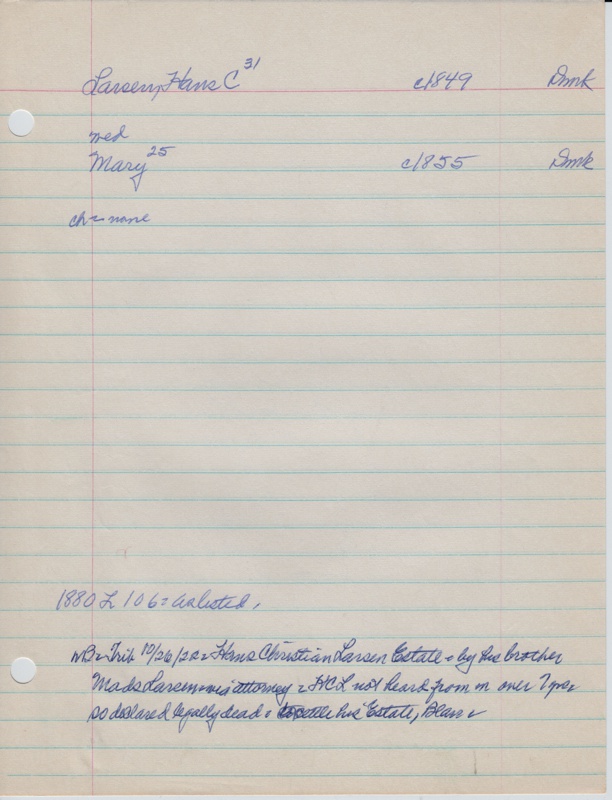 Larsen, Hans C 31 c1849 Dmk
med
Mary 25 c1855 Dmk
ch = none
1880 L 106 = as listed,
WB = Trib 10/26/22 = Hans Christian Larsen Estate = by his brother
Mads Larsen = attorney = HCL not heard from in over 7 yrs
so declared legally dead = his Estate, Blair